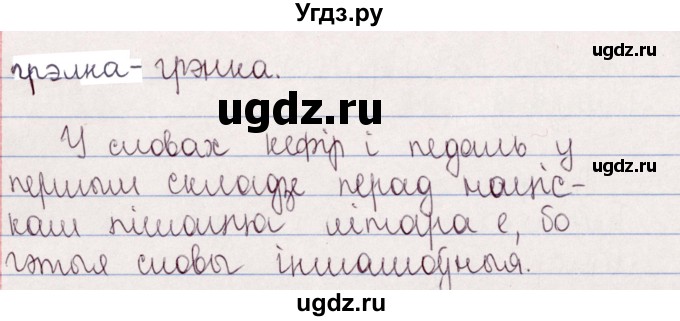 Угдз.ру
грэлка - грэнка.
У словах кефір і педаль у
першым складзе перад націс-
кам пішацца літара е, бо
гэтыя словы іншамоўныя.
ugdz.ru
ugdz.ru
ugdz.ru
ugdz.ru
ugdz.ru